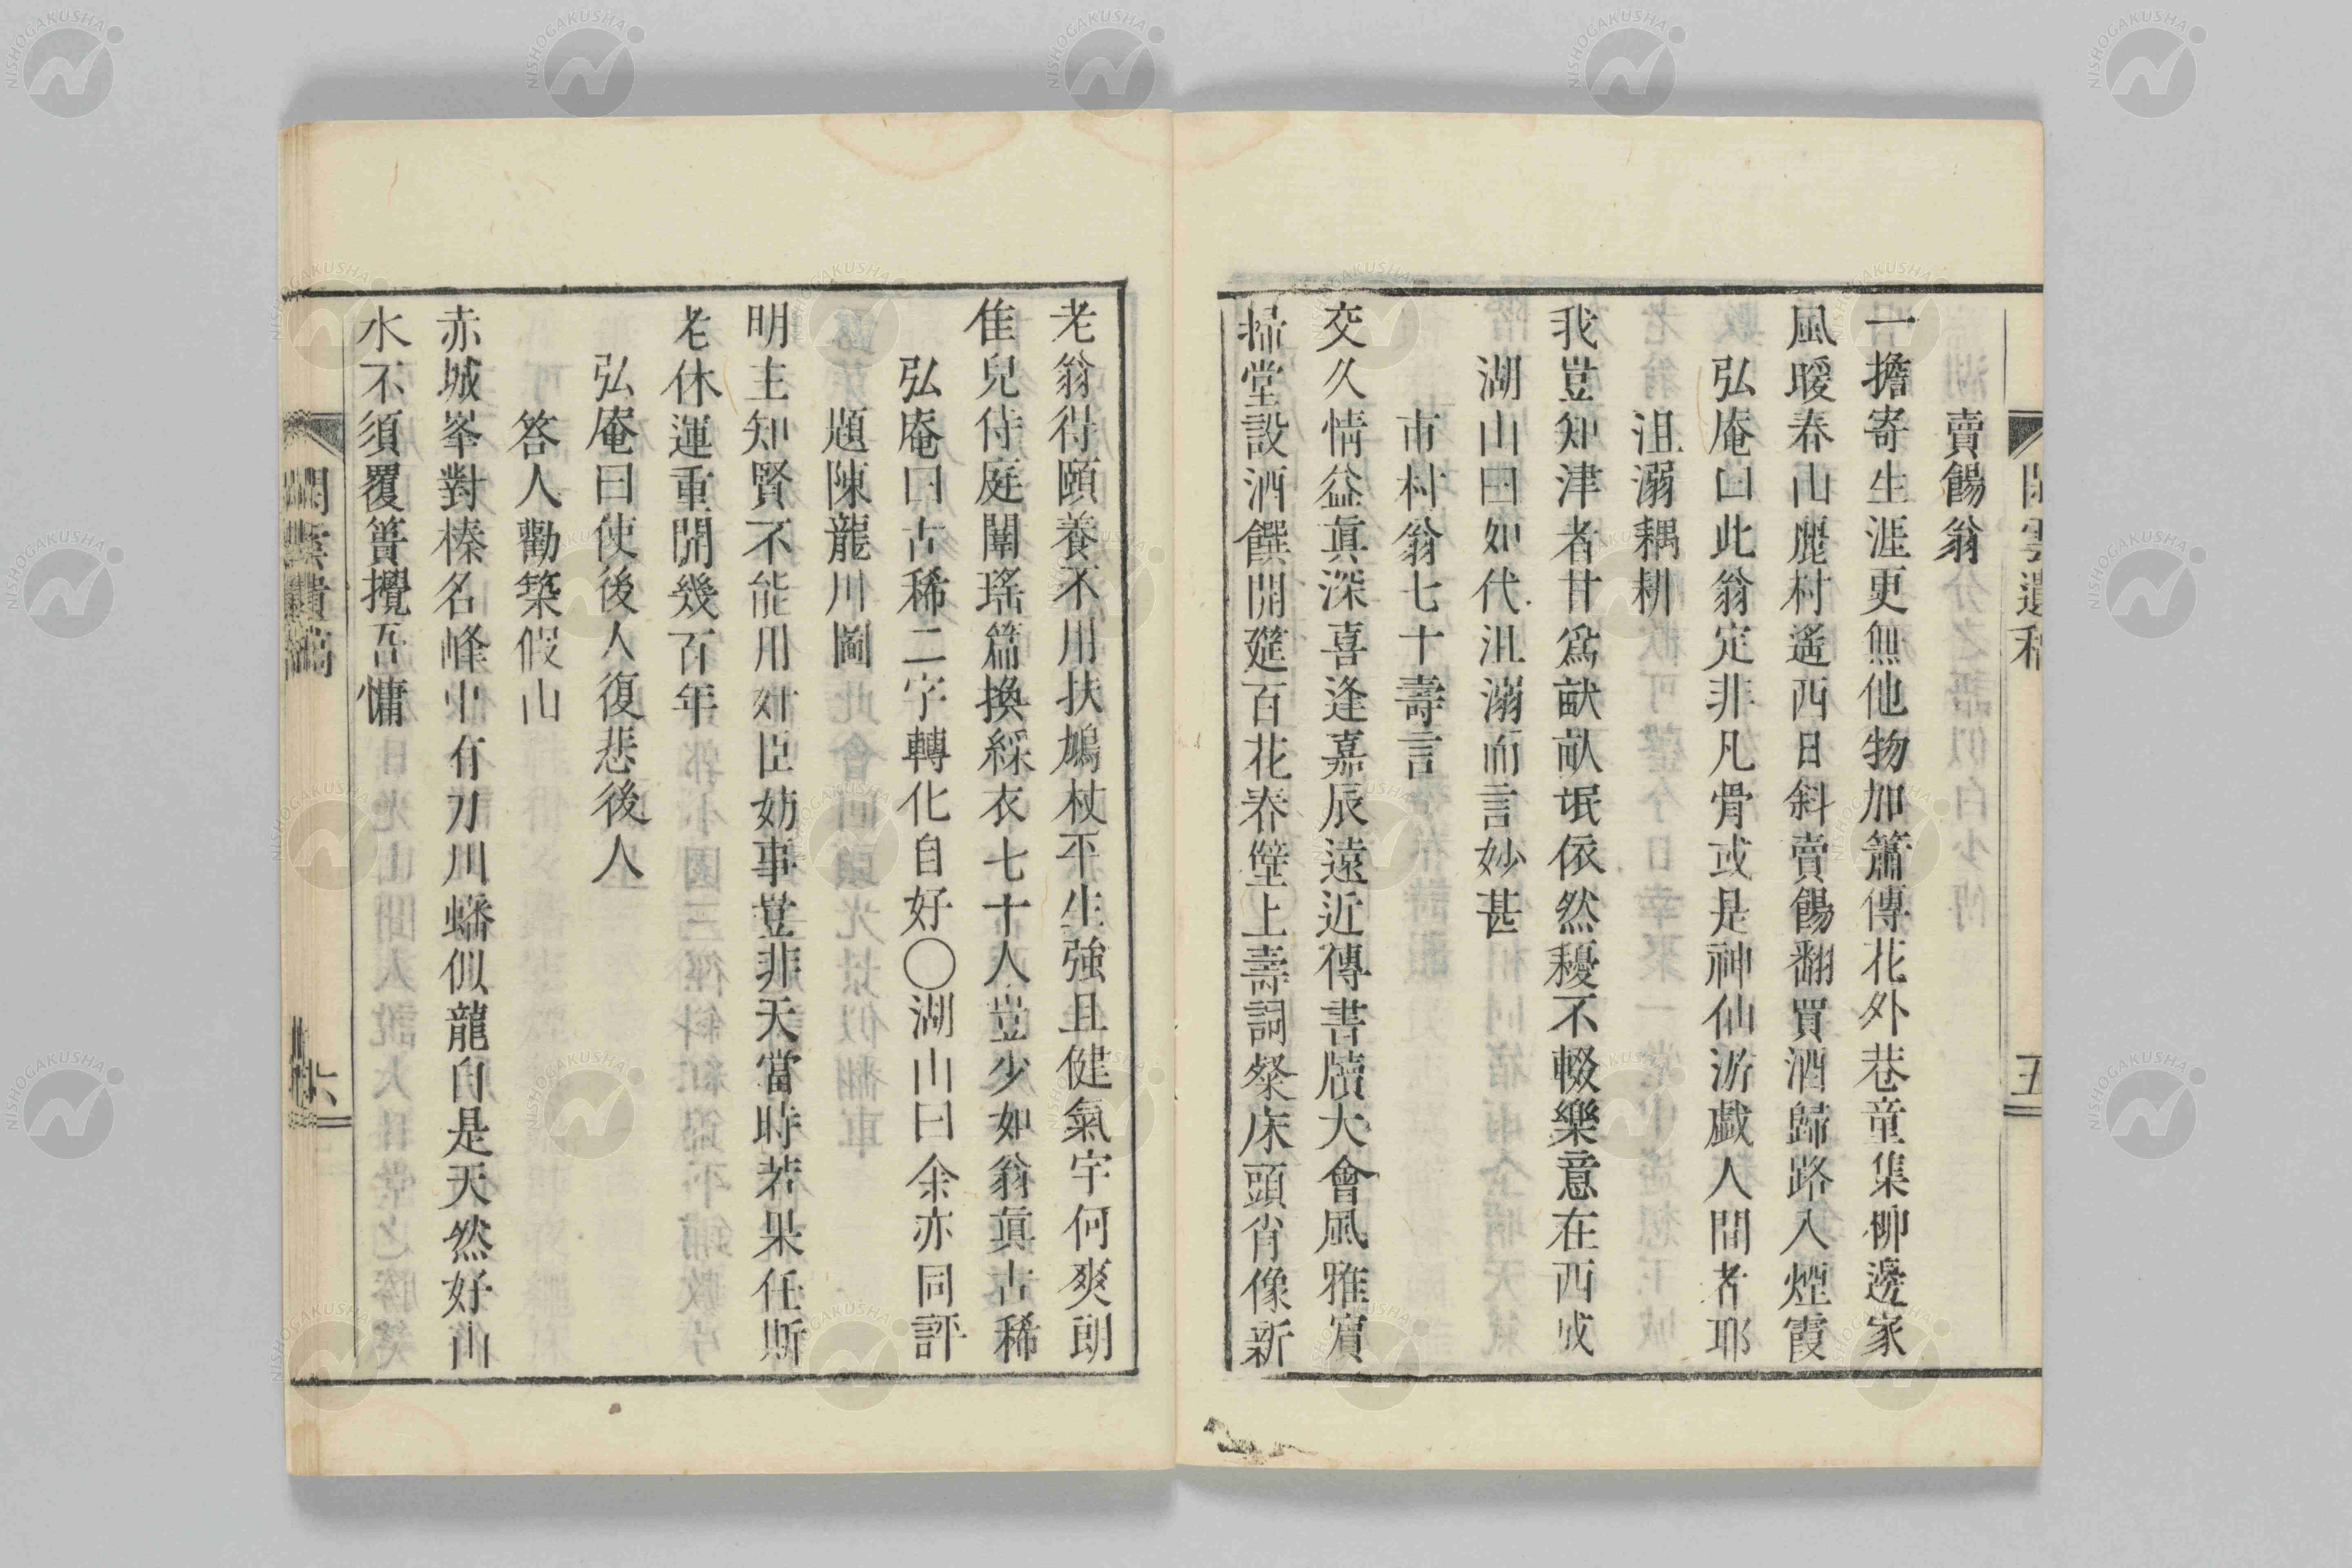 賣餳翁
一擔寄生涯更無他物加簫傳花外巷童集柳邊家
風暖春山麗村遙西日斜賣餳翻買酒歸路入煙霞
弘庵曰此翁定非凡骨或是神仙游戲人間者耶
沮溺耦耕
我豈知津者甘為畎畝氓依然耰不輟樂意在西成
湖山曰如代沮溺而言妙甚
市村翁七十壽言
交久情益眞深喜逢嘉辰遠近傳書牘大會風雅賓
掃堂設酒饌開筵百花春壁上壽詞粲床頭肖像新
老翁得頤養不用扶鳩杖平生強且健氣宇何爽朗
佳兒侍庭闈瑤篇換綵衣七十人豈少如翁眞古稀
弘庵曰古稀二字轉化自好〇湖山曰余亦同評
題陳龍川圖
明主知賢不能用奸臣妨事豈非天當時若果任斯
老休運重開幾百年
弘庵曰使後人復悲後人
答人勸築假山
赤城峯對榛名峰中有刀川蟠似龍自是天然好山
水不須覆簣攪吾慵
六
NISHOGAKUSHA